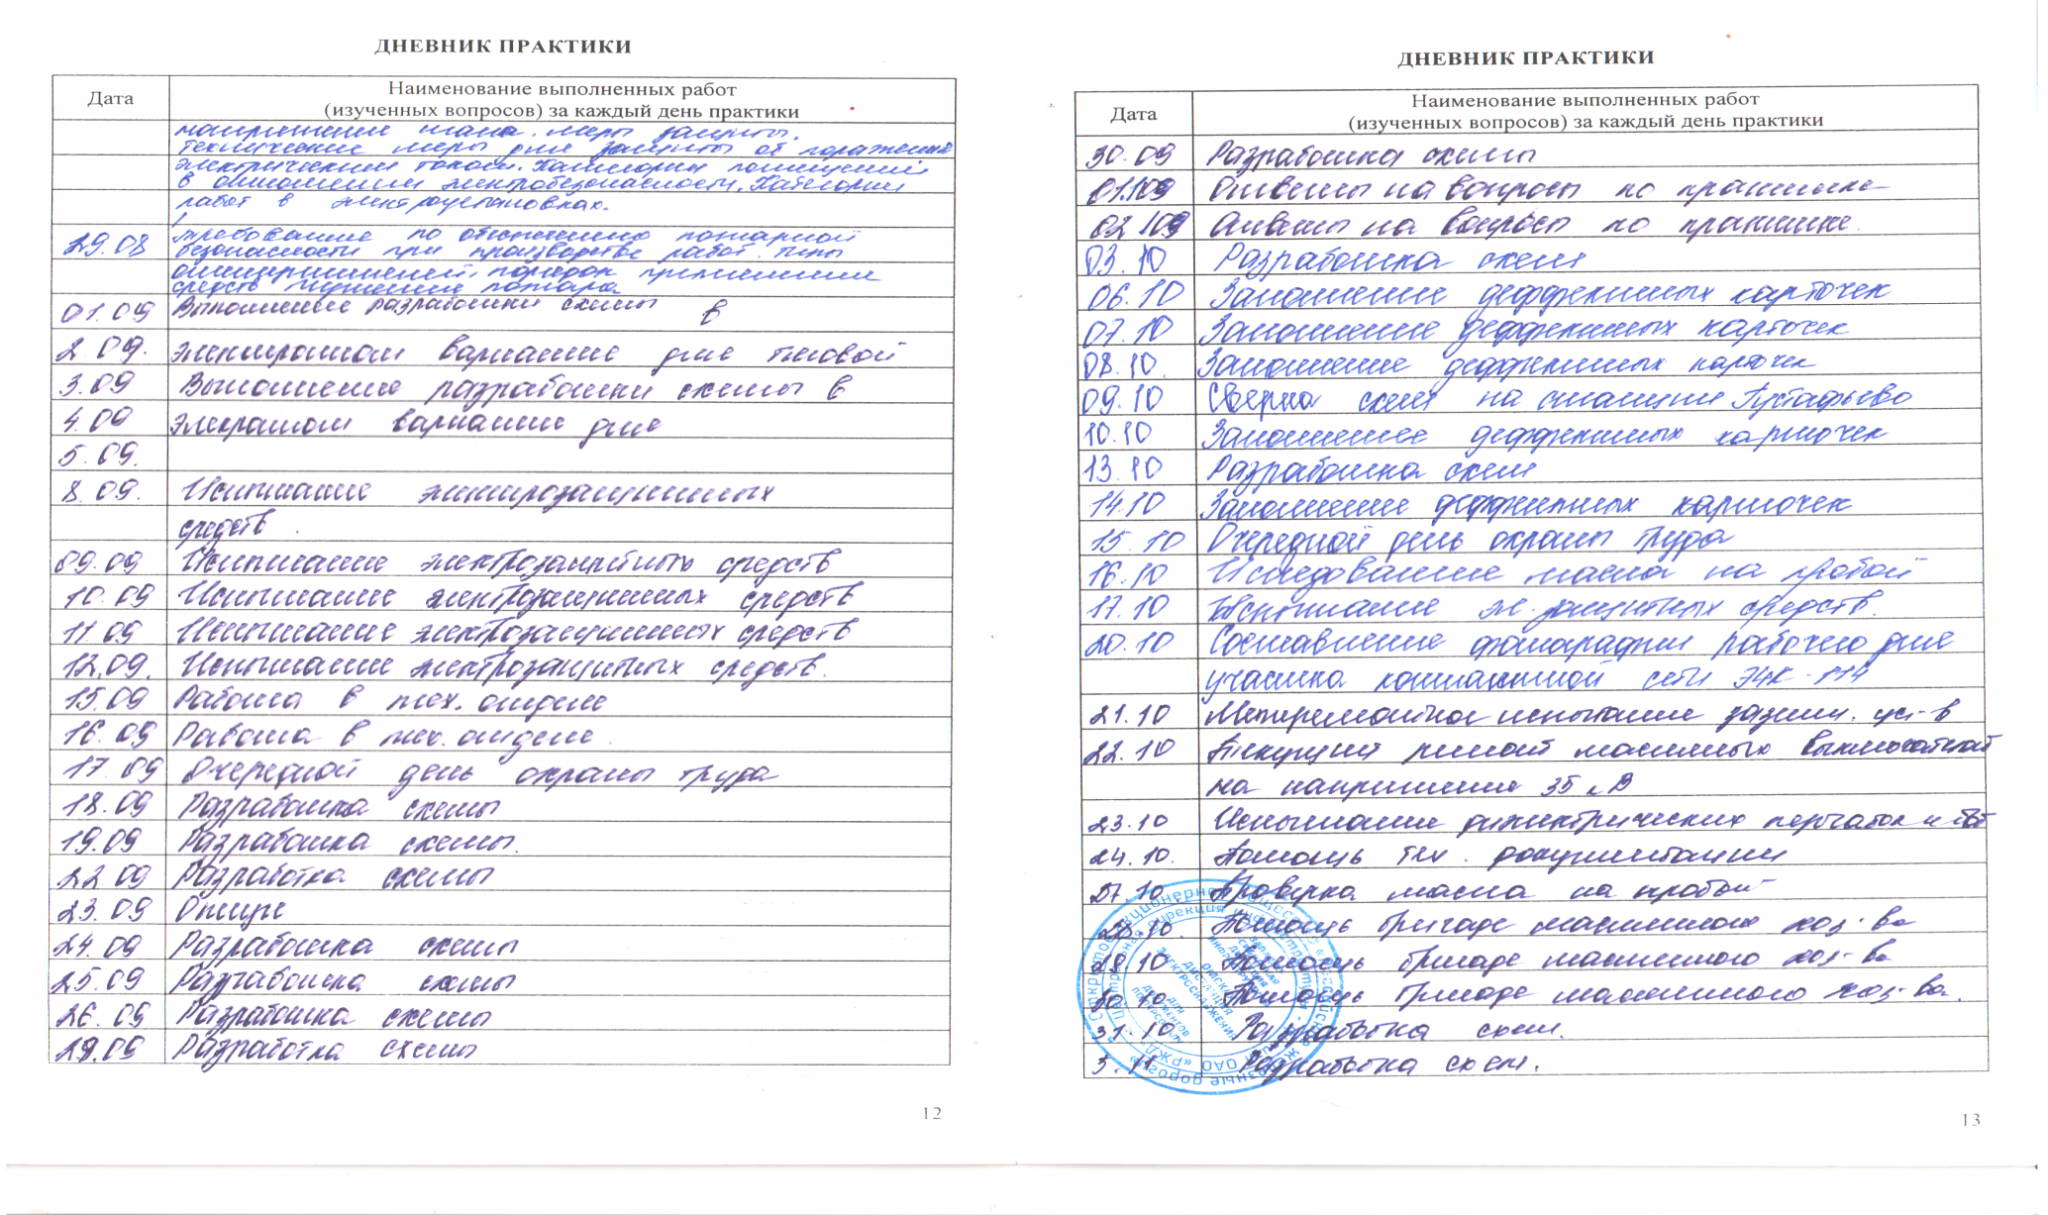 ДНЕВНИК ПРАКТИКИ
Дата
Наименование выполненных работ
(изученных вопросов) за каждый день практики
напряжение шага. Меры защиты.
Технические меры для защиты от поражения
электрическим током. Категории помещений
в отношении электробезопасности. Категории
работ в электроустановках.
29.08 Требование по обеспечению пожарной
безопасности при производстве работ. Типы
огнетушителей. Порядок применения
средств тушения пожара
01.09 Выполнение разработки схемы в
2.09. электронном варианте для тяговой
3.09 Выполнение разработки схемы в
4.09 элекраном варианте для
5.09.
8.09. Испытание электрозащитных
средств.
09.09 Испытание электрозащитных средств
10.09 Испытание электрозащитных средств
11.09 Испытание электрозащитных средств
12.09. Испытание электрозащитных средств.
15.09 Работа в тех. отделе
16.09 Работа в тех. отделе.
17.09 Очередной день охраны труда
18.09 Разработка схемы
19.09 Разработка схемы.
22.09 Разработка схемы
23.09 Отгул
24.09 Разработка схемы
25.09 Разработка схемы
26.09 Разработка схемы
29.09 Разработка схемы
12
ДНЕВНИК ПРАКТИКИ
Дата
Наименование выполненных работ
(изученных вопросов) за каждый день практики
30.09 Разработка схемы
01.10 Ответы на вопросы по практике
02.10 Ответы на вопросы по практике.
03.10 Разработка схем
06.10 Заполнение деффектных карточек
07.10 Заполнение деффектных карточек
08.10. Заполнение деффектных карточек
09.10 Сверка схем на станции
10.10 Заполнение деффектных карточек
13.10 Разработка схем
14.10 Заполнение деффектных карточек
15.10 Очередной день охраны труда
16.10 Исследование масла на пробой
17.10 Испытание эл. защитных средств.
20.10 Составление фотографии рабочего дня
участка контактной сети ЭЧК-
21.10 Межремонтное испытание зазем. уст-в
22.10 Текущий ремонт масляных выключателей
на напряжение 35 кВ
23.10 Испытание диэлектрических перчаток и бот
24.10. Помощь тех. документации
27.10 Проверка масла на пробой
28.10. Помощь бригаде масляного хоз-ва
29.10 Помощь бригаде масляного хоз-ва
30.10 Помощь бригаде масляного хоз-ва.
31.10 Разработка схем.
3.11 Разработка схем.
13